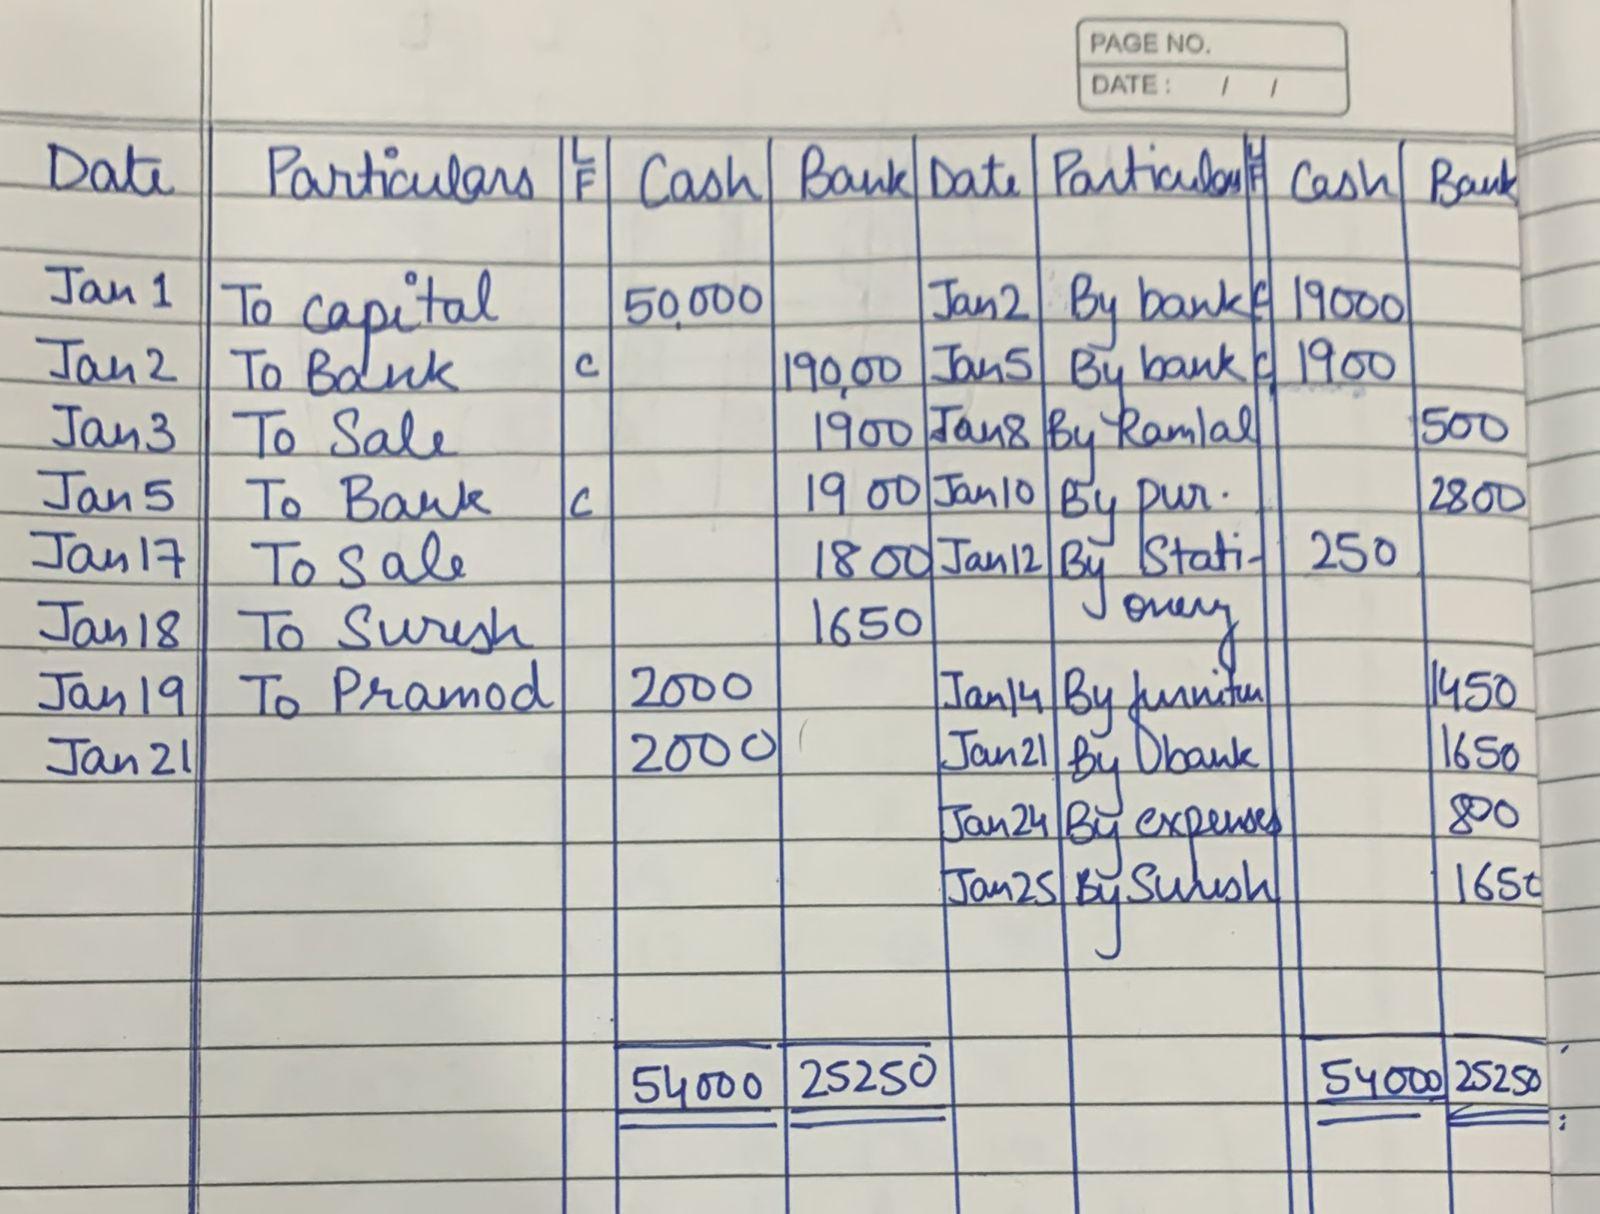 PAGE NO.
DATE : / /
Date Particulars LF Cash Bank Date Particulars LF Cash Bank
Jan 1 To capital 50,000 Jan 2 By bank c 19000
Jan 2 To Bank c 190,00 Jan 5 By bank c 1900
Jan 3 To Sale 1900 Jan 8 By Ramlal 500
Jan 5 To Bank c 1900 Jan 10 By pur. 2800
Jan 17 To Sale 1800 Jan 12 By Stati- 250
Jan 18 To Suresh 1650 onery
Jan 19 To Pramod 2000 Jan 14 By furnitur 1450
Jan 21 2000 Jan 21 By Dbank 1650
Jan 24 By expenses 800
Jan 25 By Suresh 1650
54000 25250 54000 25250